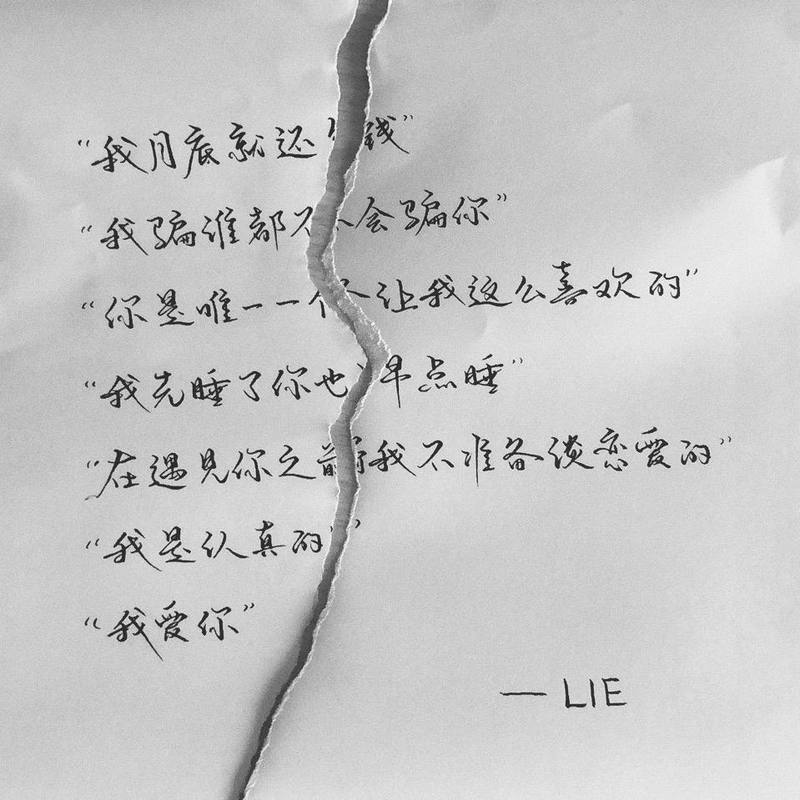 “我月底就还你钱”
“我骗谁都不会骗你”
“你是唯一一个让我这么喜欢的”
“我先睡了你也早点睡”
“在遇见你之前我不准备谈恋爱的”
“我是认真的”
“我爱你”
— LIE